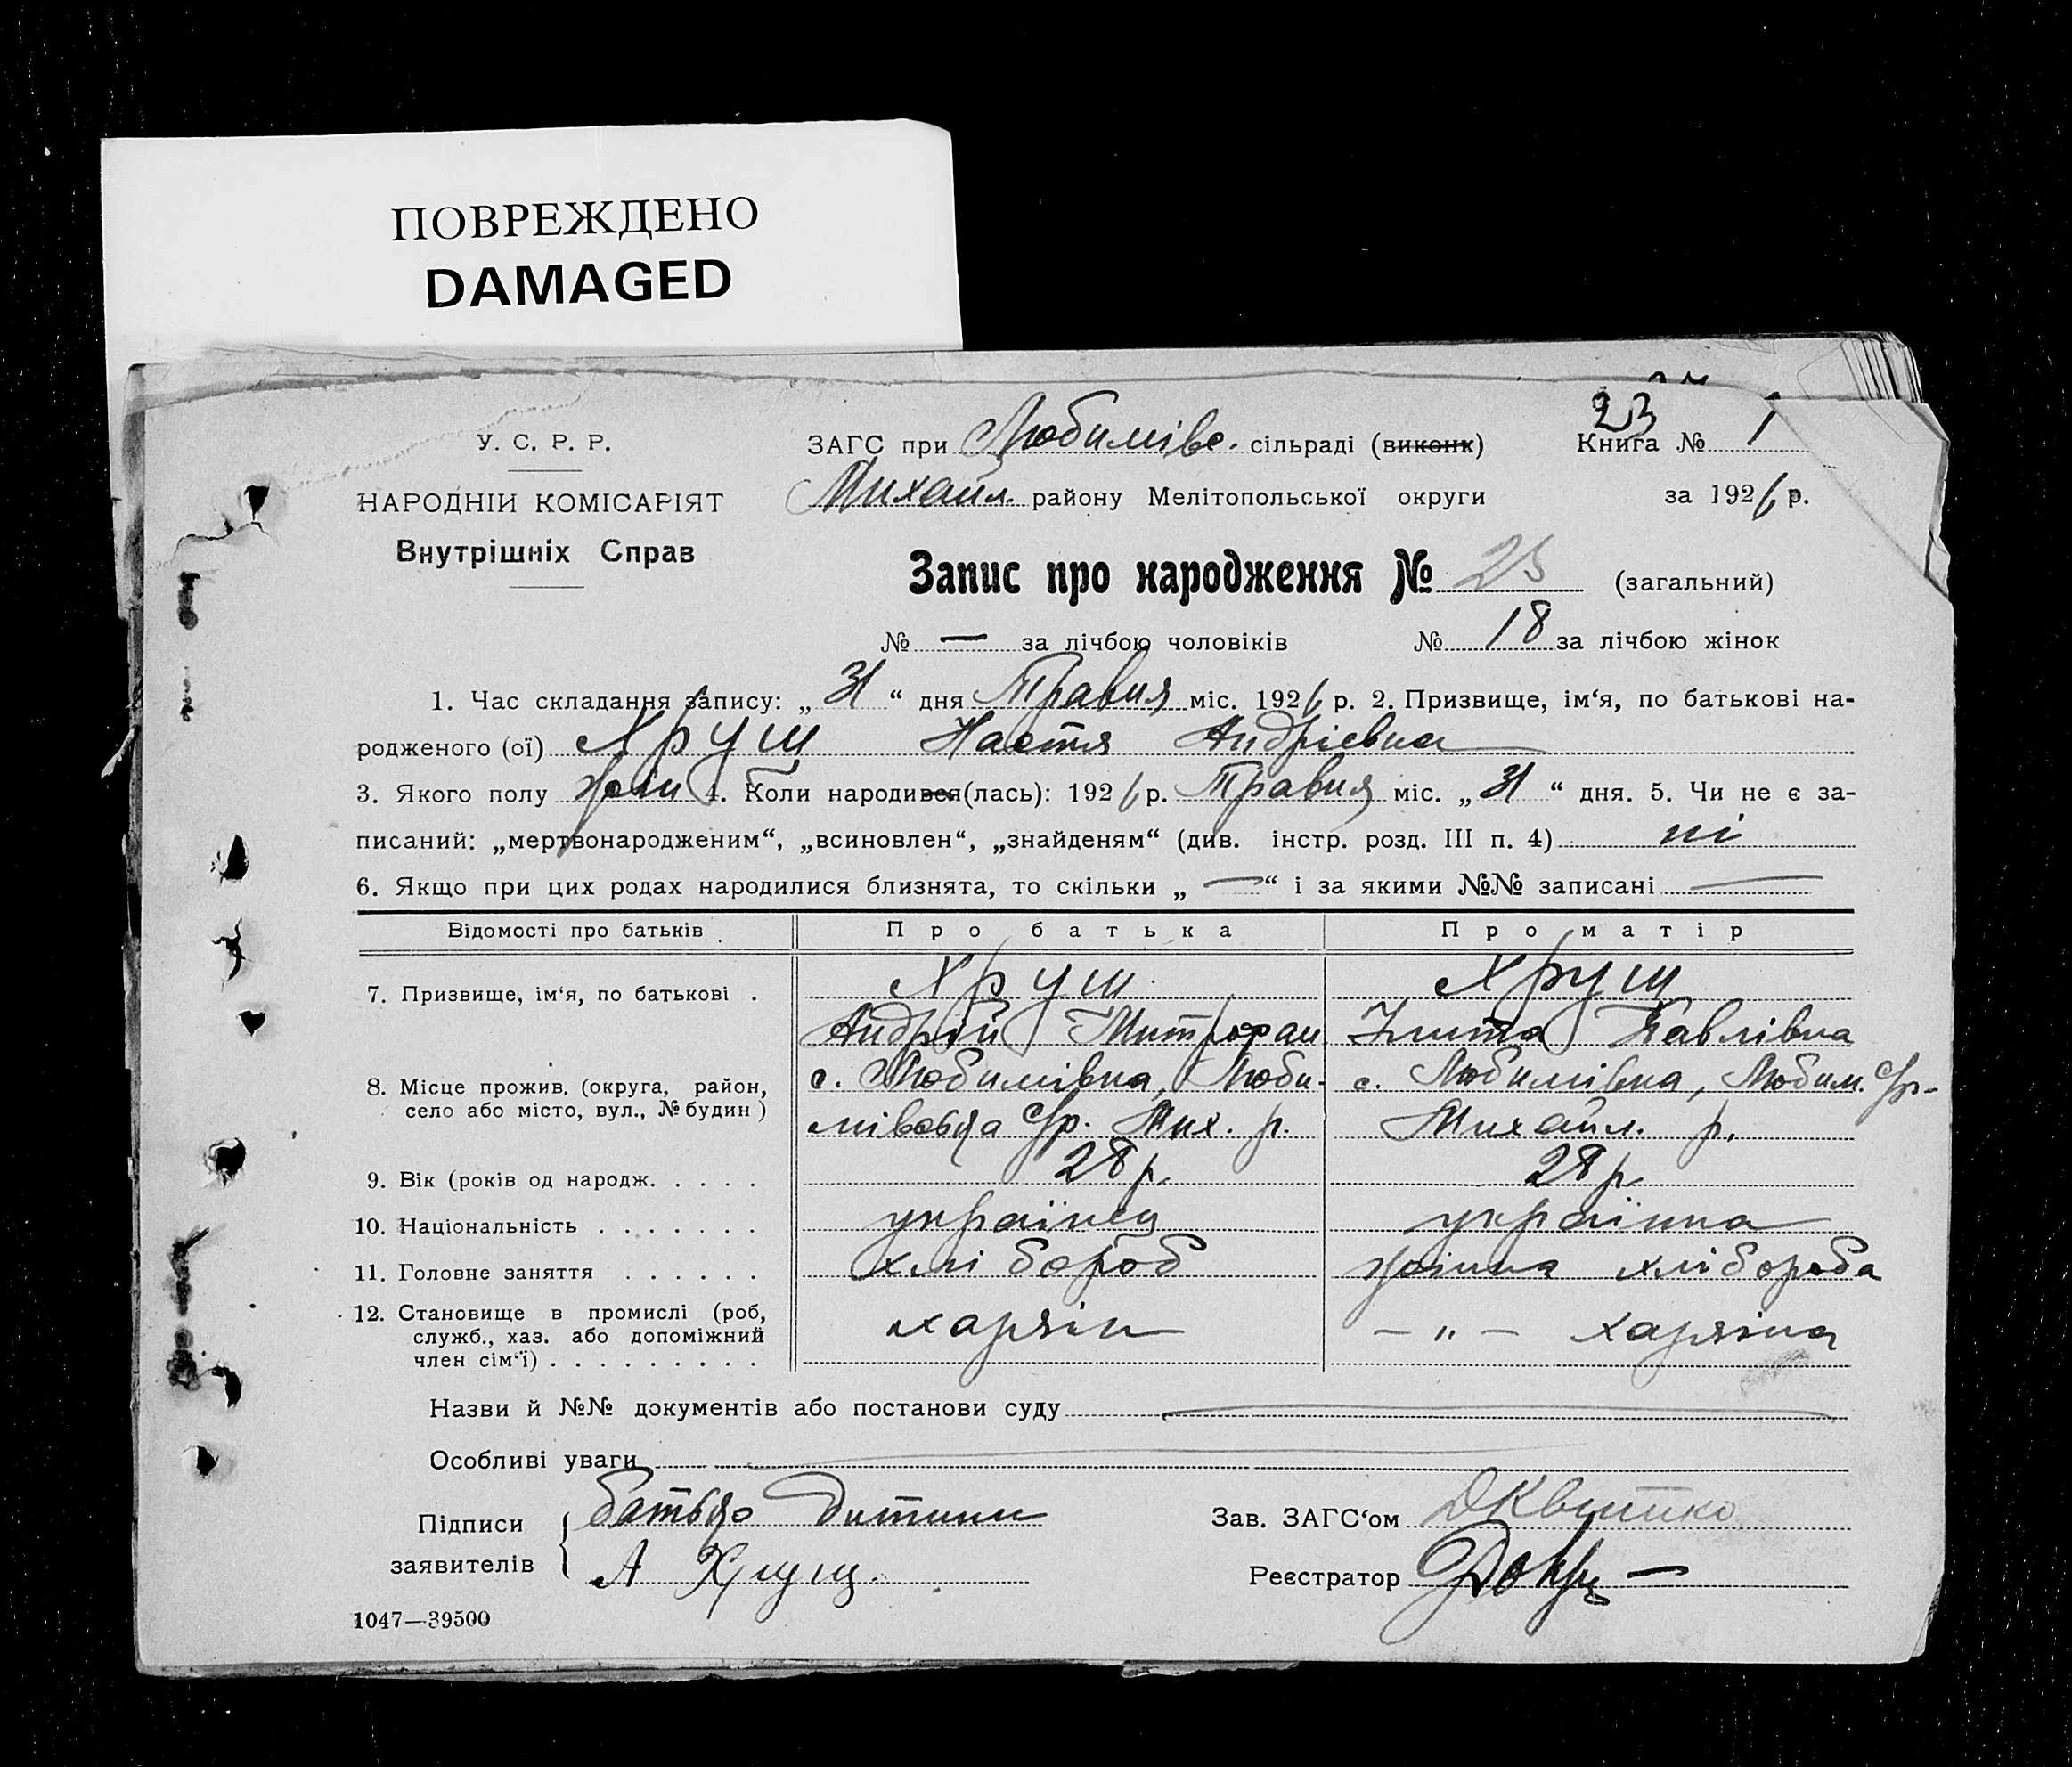 ПОВРЕЖДЕНО
DAMAGED
23
У. С. Р. Р.
ЗАГС при Любимівс. сільраді (виконк)
Книга № 1
НАРОДНІЙ КОМІСАРІЯТ
Михайл. району Мелітопольської округи
за 1926 р.
Внутрішніх Справ
Запис про народження № 25 (загальний)
№ — за лічбою чоловіків № 18 за лічбою жінок
1. Час складання запису: „ 31 “ дня Травня міс. 1926 р. 2. Призвище, ім‘я, по батькові на-
родженого (ої) Хрущ Настя Андрієвна
3. Якого полу жін 4. Коли народився(лась): 1926 р. Травня міс. „ 31 “ дня. 5. Чи не є за-
писаний: „мертвонародженим“, „всиновлен“, „знайденям“ (див. інстр. розд. III п. 4) ні
6. Якщо при цих родах народилися близнята, то скільки „ — “ і за якими №№ записані —
Відомості про батьків
Про батька
Про матір
7. Призвище, ім‘я, по батькові .
Хрущ
Андрій Митрофан
Хрущ
Павлівна
8. Місце прожив. (округа, район,
село або місто, вул., № будин )
с. Любимівка, Люби-
Мих. р.
с. Любимівка, Любим. С/р-
Михайл. р.
9. Вік (років од народж. . . . .
28 р.
28 р.
10. Національність . . . . . . .
українец
українка
11. Головне заняття . . . . . .
хлібороб
жінка хлібороба
12. Становище в промислі (роб,
служб., хаз. або допоміжний
член сім‘ї) . . . . . . . . .
— „ —
Назви й №№ документів або постанови суду
Особливі уваги
Підписи
заявителів
батько дитини
А Хрущ.
Зав. ЗАГС‘ом ДКвитко
Реєстратор
1047—39500